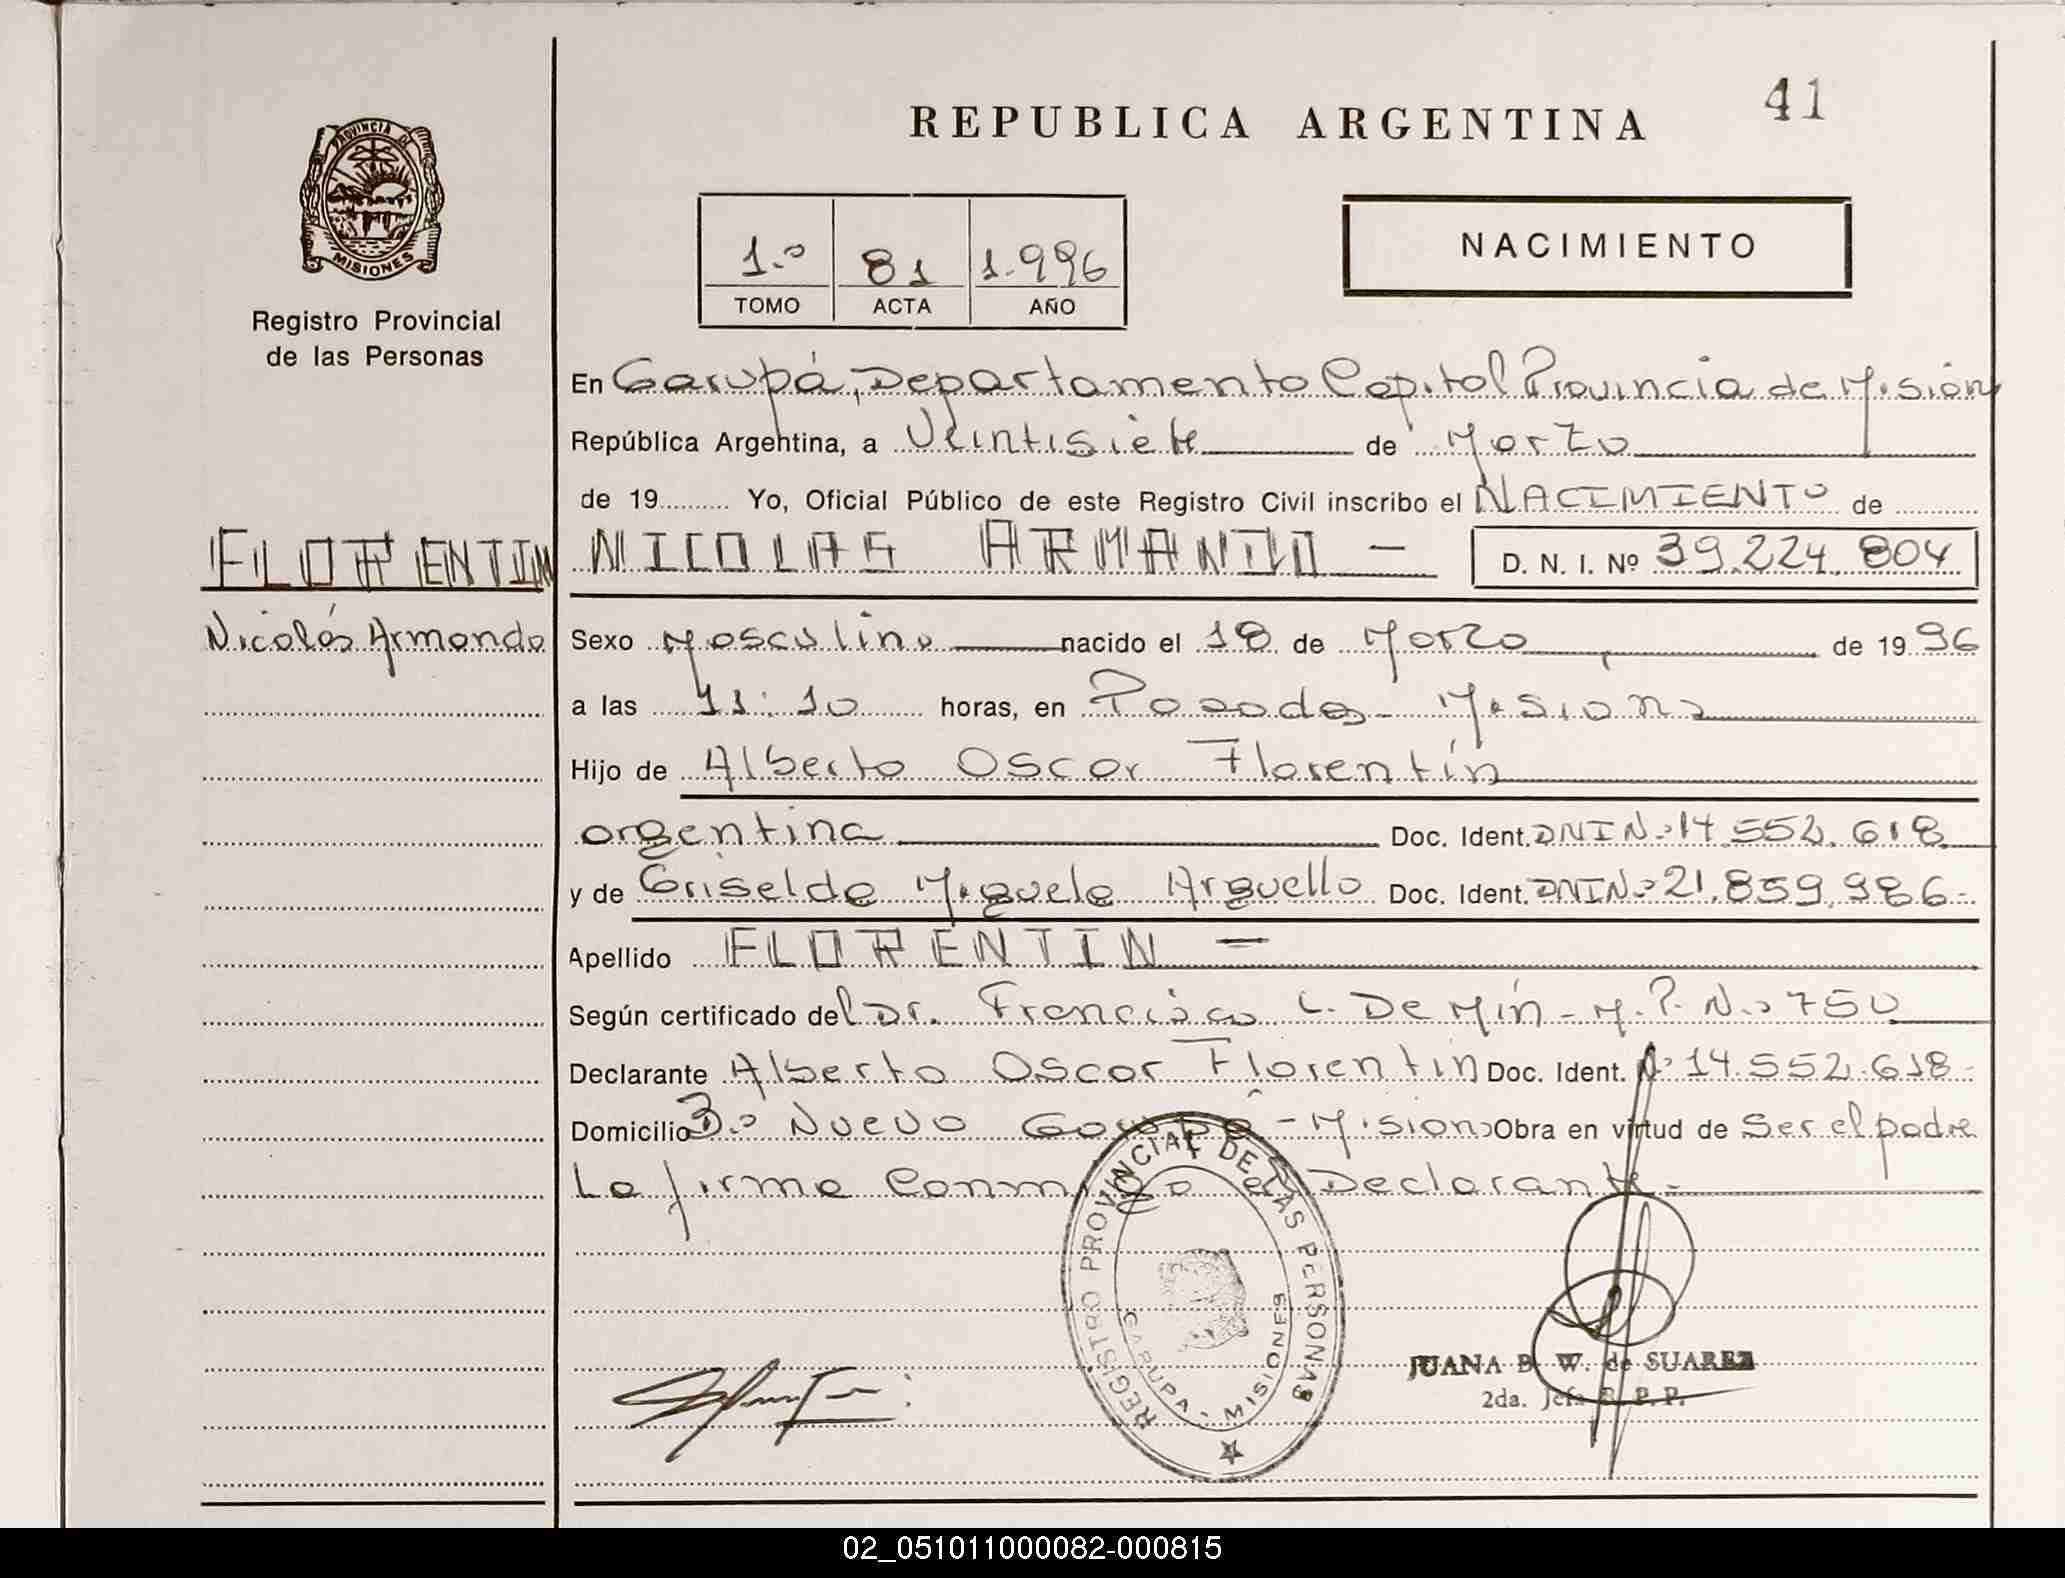 41
REPUBLICA ARGENTINA
PROVINCIA DE
MISIONES
Registro Provincial
de las Personas
1.º 81 1.996
TOMO ACTA AÑO
NACIMIENTO
En Garupá, Departamento Capital Provincia de Mision
República Argentina, a Veintisiete de Marzo
de 19 Yo, Oficial Público de este Registro Civil inscribo el NACIMIENTO de
FLORENTIN NICOLAS ARMANDO - D. N. I. Nº 39.224.804
Nicolás Armando
Sexo Masculino nacido el 18 de Marzo de 1996
a las 11:10 horas, en Posadas - Misiones
Hijo de Alberto Oscar Florentín
argentina Doc. Ident. DNI Nº 14.552.618
y de Griselda Miguela Arguello Doc. Ident. DNI Nº 21.859.986-
Apellido FLORENTIN -
Según certificado del Dr. Francisco L. De Mín - M.P. Nº 750
Declarante Alberto Oscar Florentín Doc. Ident. Nº 14.552.618-
Domicilio Bº Nuevo Garupá - Misiones Obra en virtud de ser el padre
La firma Conmigo el Declarante.-
REGISTRO PROVINCIAL DE LAS PERSONAS
GARUPA - MISIONES
JUANA B. W. de SUAREZ
2da. Jefa R. P. P.
02_051011000082-000815